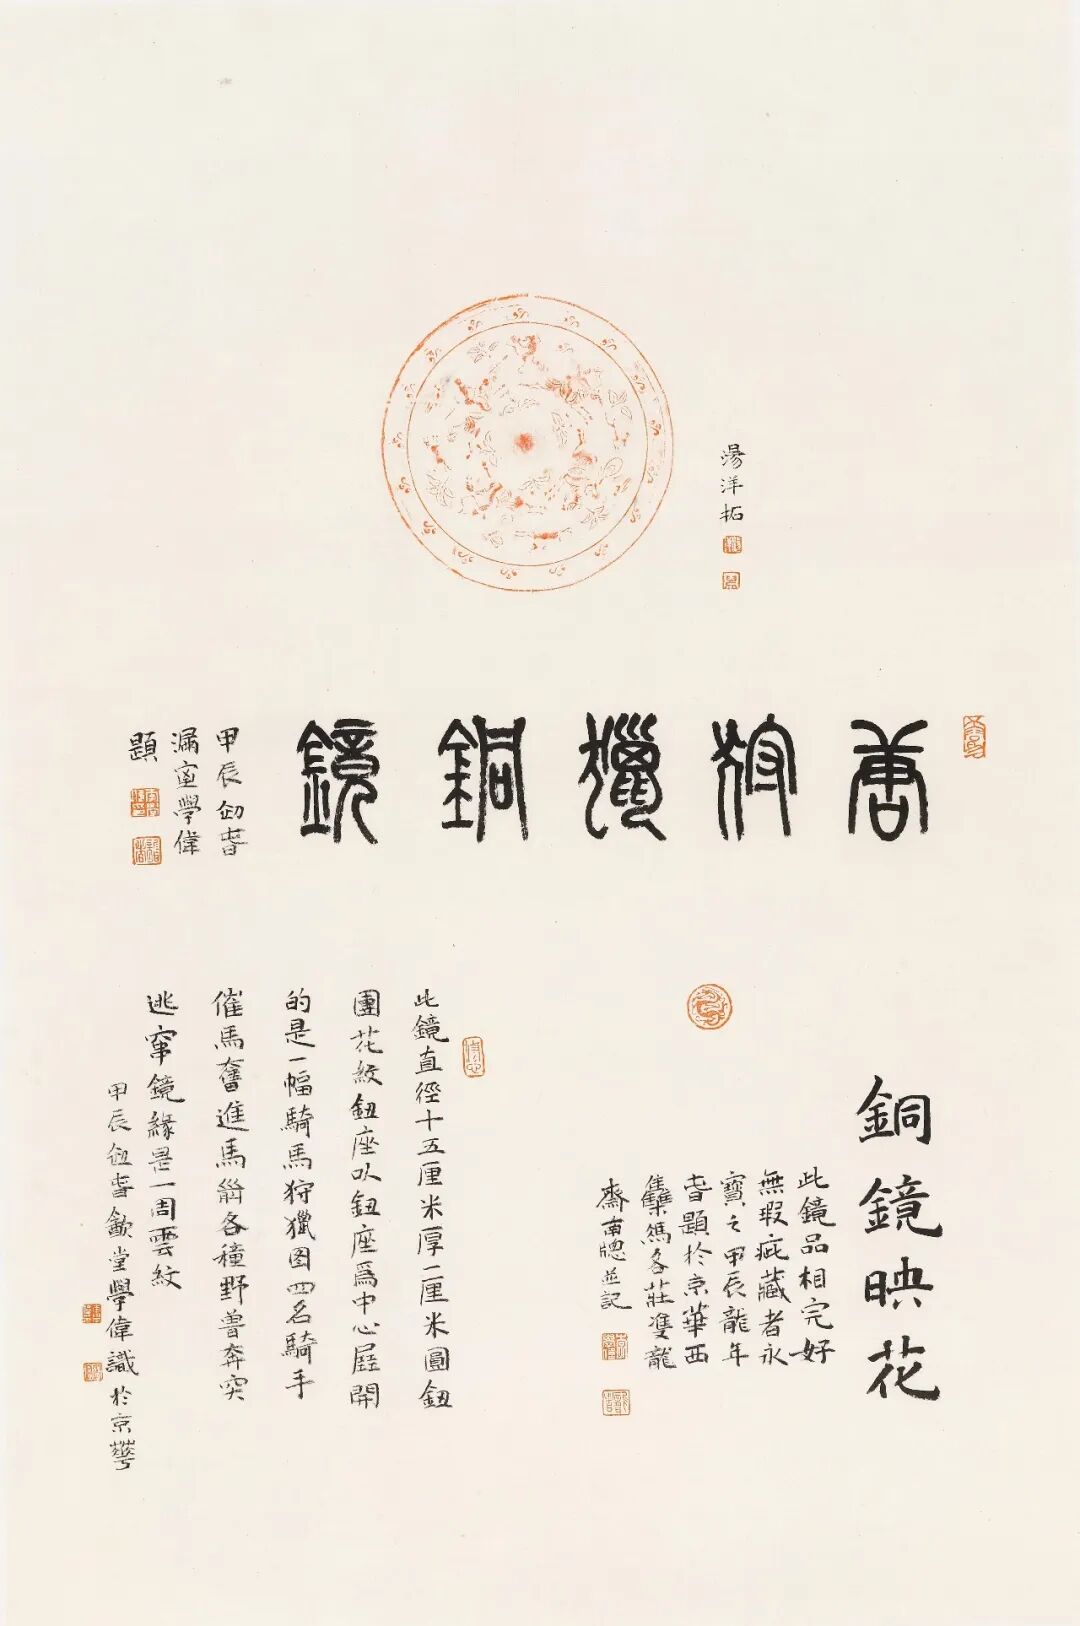 湯洋拓
唐狩獵銅鏡
甲辰初春
漏室學偉
題
銅鏡映花
此鏡品相完好
無瑕疵藏者永
寶之甲辰龍年
春題於京華西
集馮各莊雙龍
齋南窗並記
此鏡直徑十五厘米厚二厘米圓鈕
團花紋鈕座以鈕座爲中心展開
的是一幅騎馬狩獵图四名騎手
催馬奮進馬前各種野兽奔突
逃竄鏡緣是一周雲紋
甲辰初春歙堂學偉識於京華